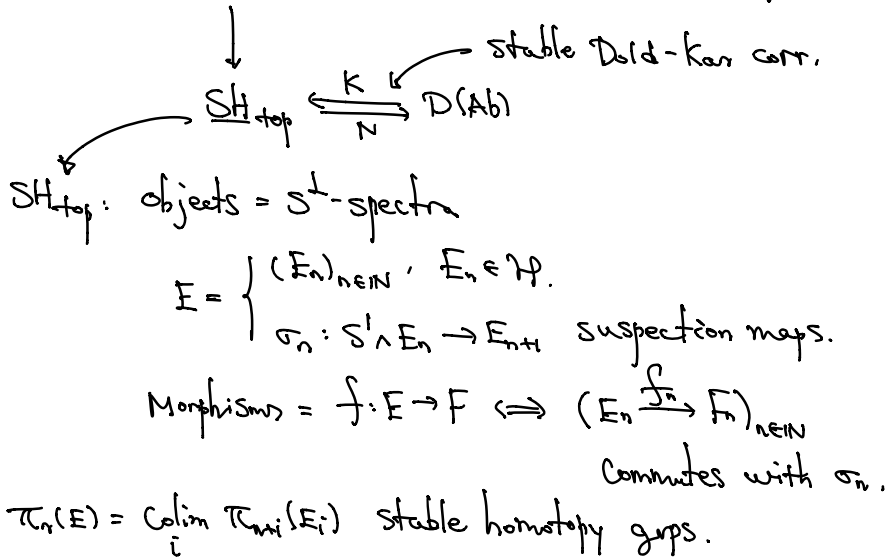 stable Dold-Kan corr.
SH_top ⇄ D(Ab)
K
N
SH_top: objects = S^1-spectra
E = { (E_n)_{n∈ℕ}, E_n ∈ 
σ_n : S^1 ∧ E_n → E_{n+1} suspection maps.
Morphisms = f: E → F ⇔ (E_n \xrightarrow{f_n} F_n)_{n∈ℕ}
commutes with σ_n.
π_n(E) = colim_i π_{n+i}(E_i) stable homotopy grps.